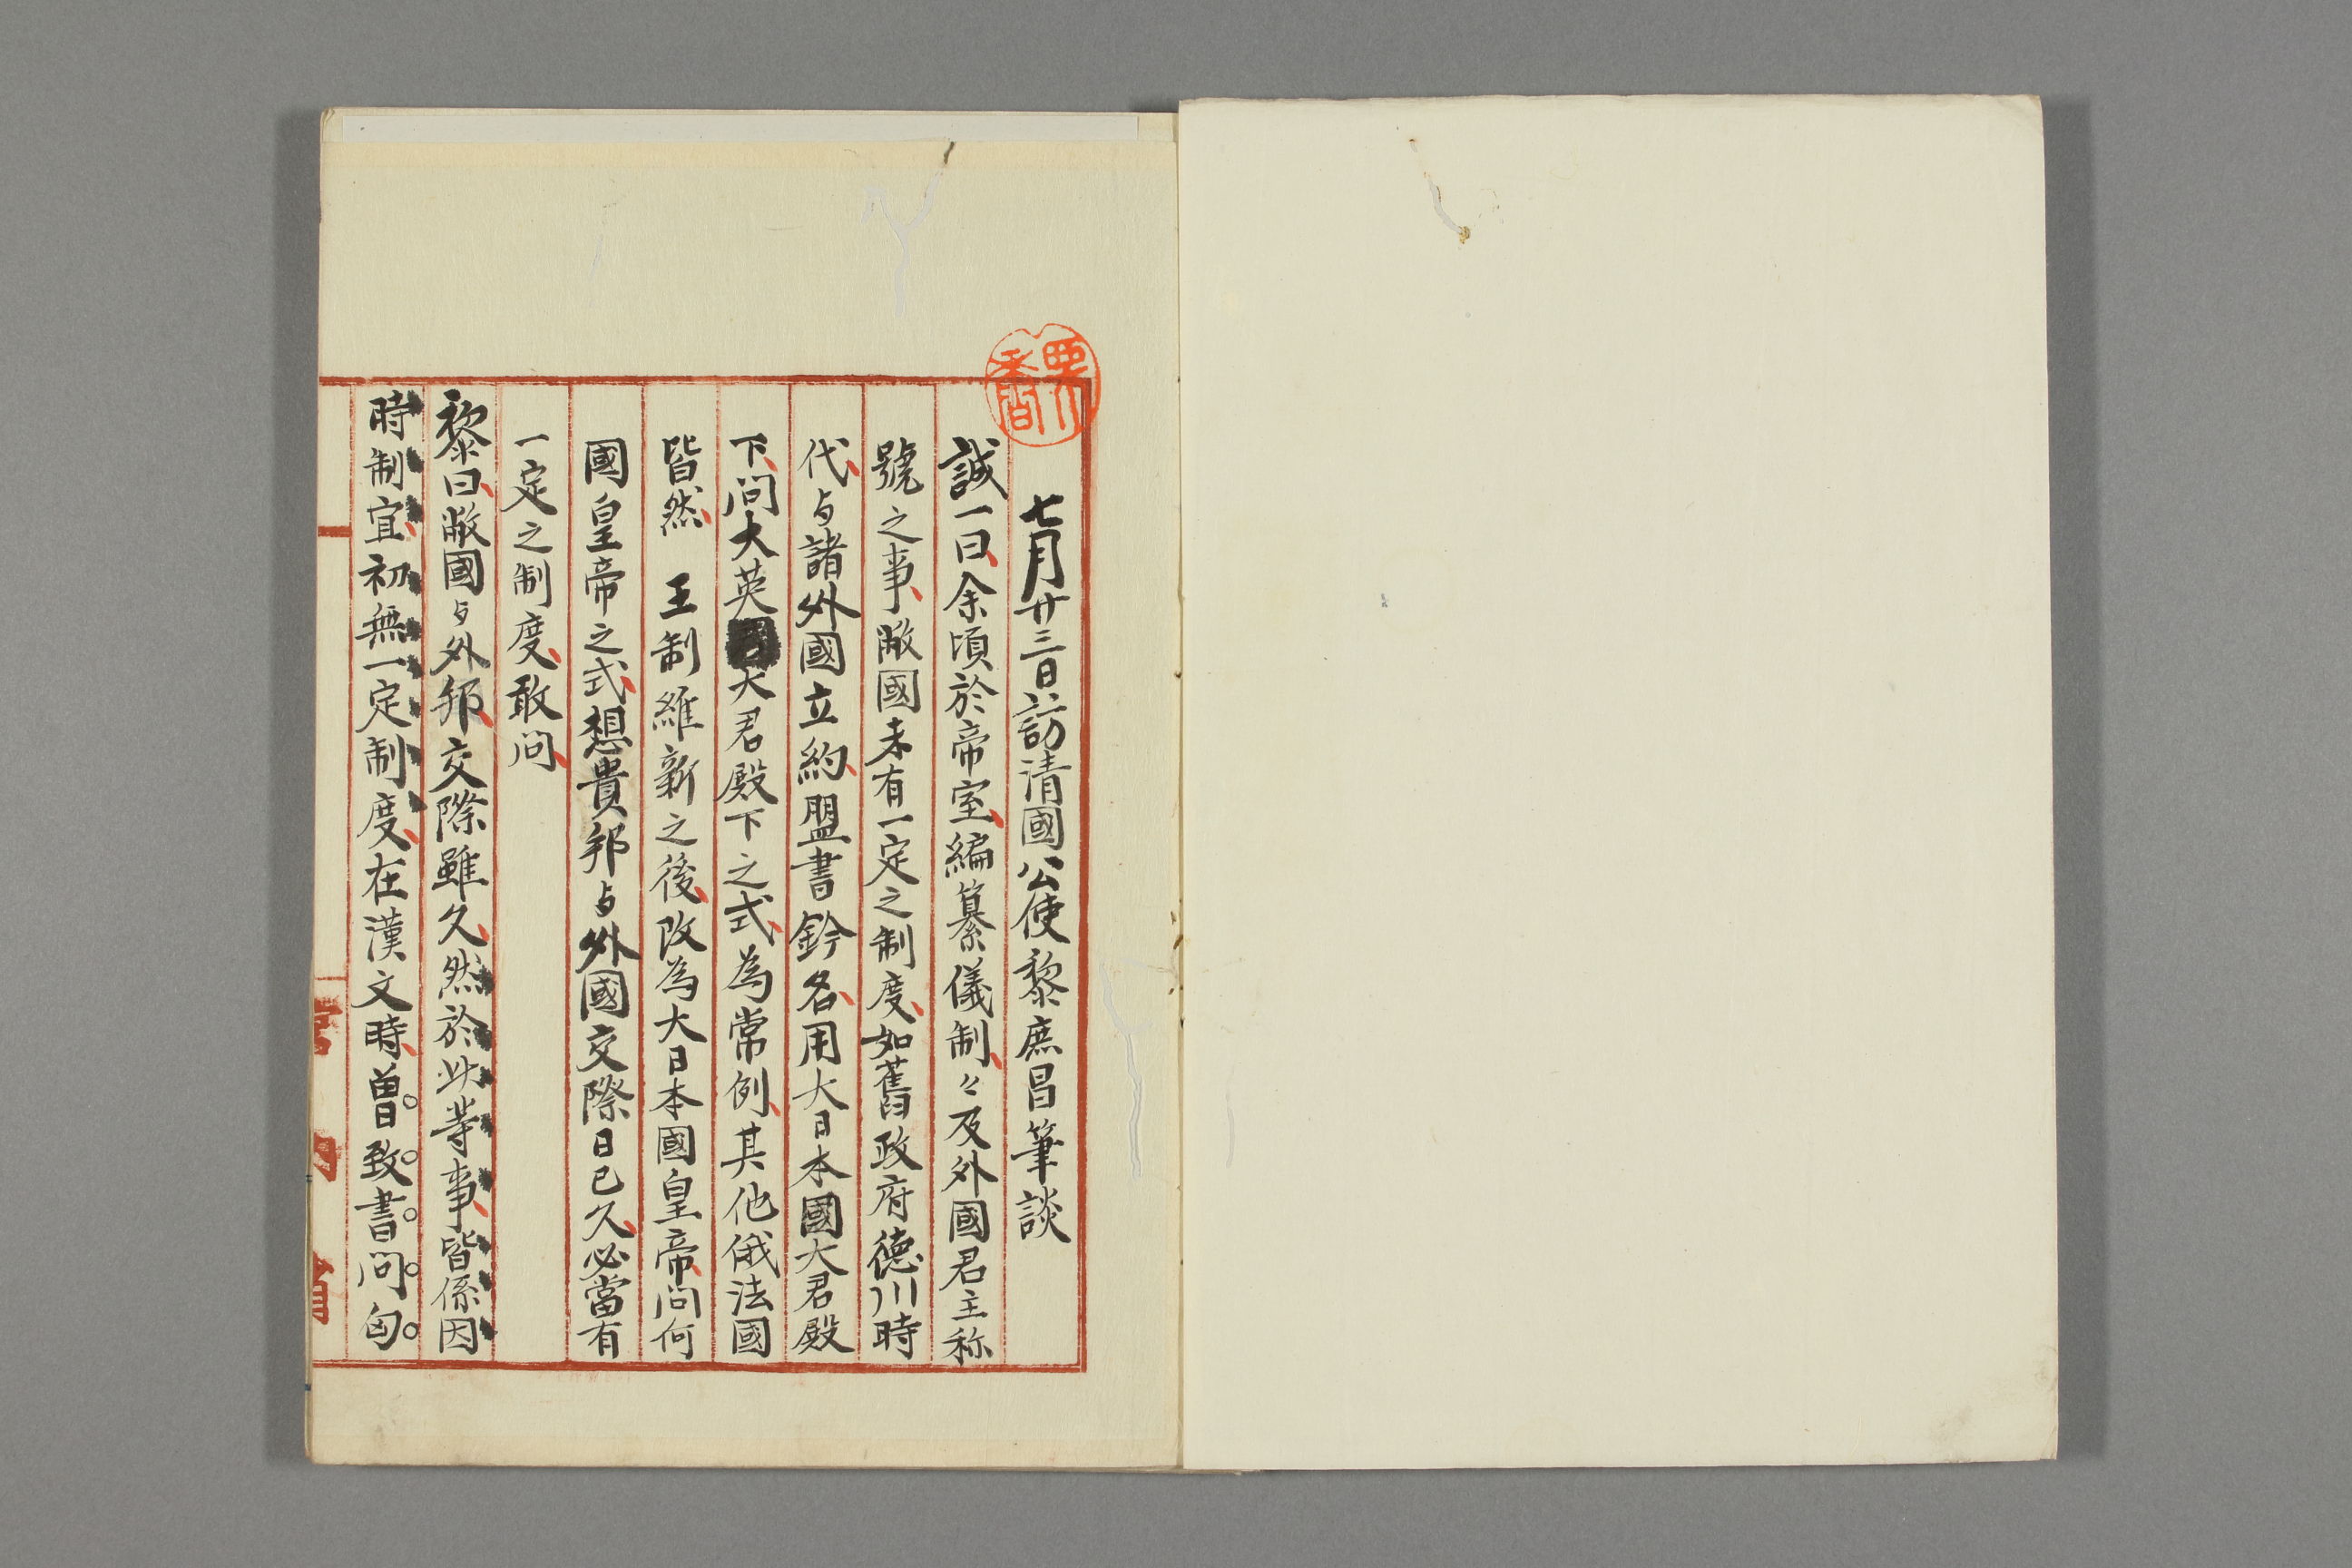 栗香
七月廿三日訪清國公使黎庶昌筆談
誠一曰余頃於帝室編纂儀制々及外國君主称
號之事敝國未有一定之制度如舊政府德川時
代与諸外國立約盟書鈐名用大日本國大君殿
下問大英國大君殿下之式為常例其他俄法國
皆然 王制維新之後改為大日本國皇帝問何
國皇帝之式想貴邦与外國交際日已久必當有
一定之制度敢問
黎曰敝國与外邦交際雖久然於此等事皆係因
時制宜初無一定制度在漢文時曽致書問匈
宮內省